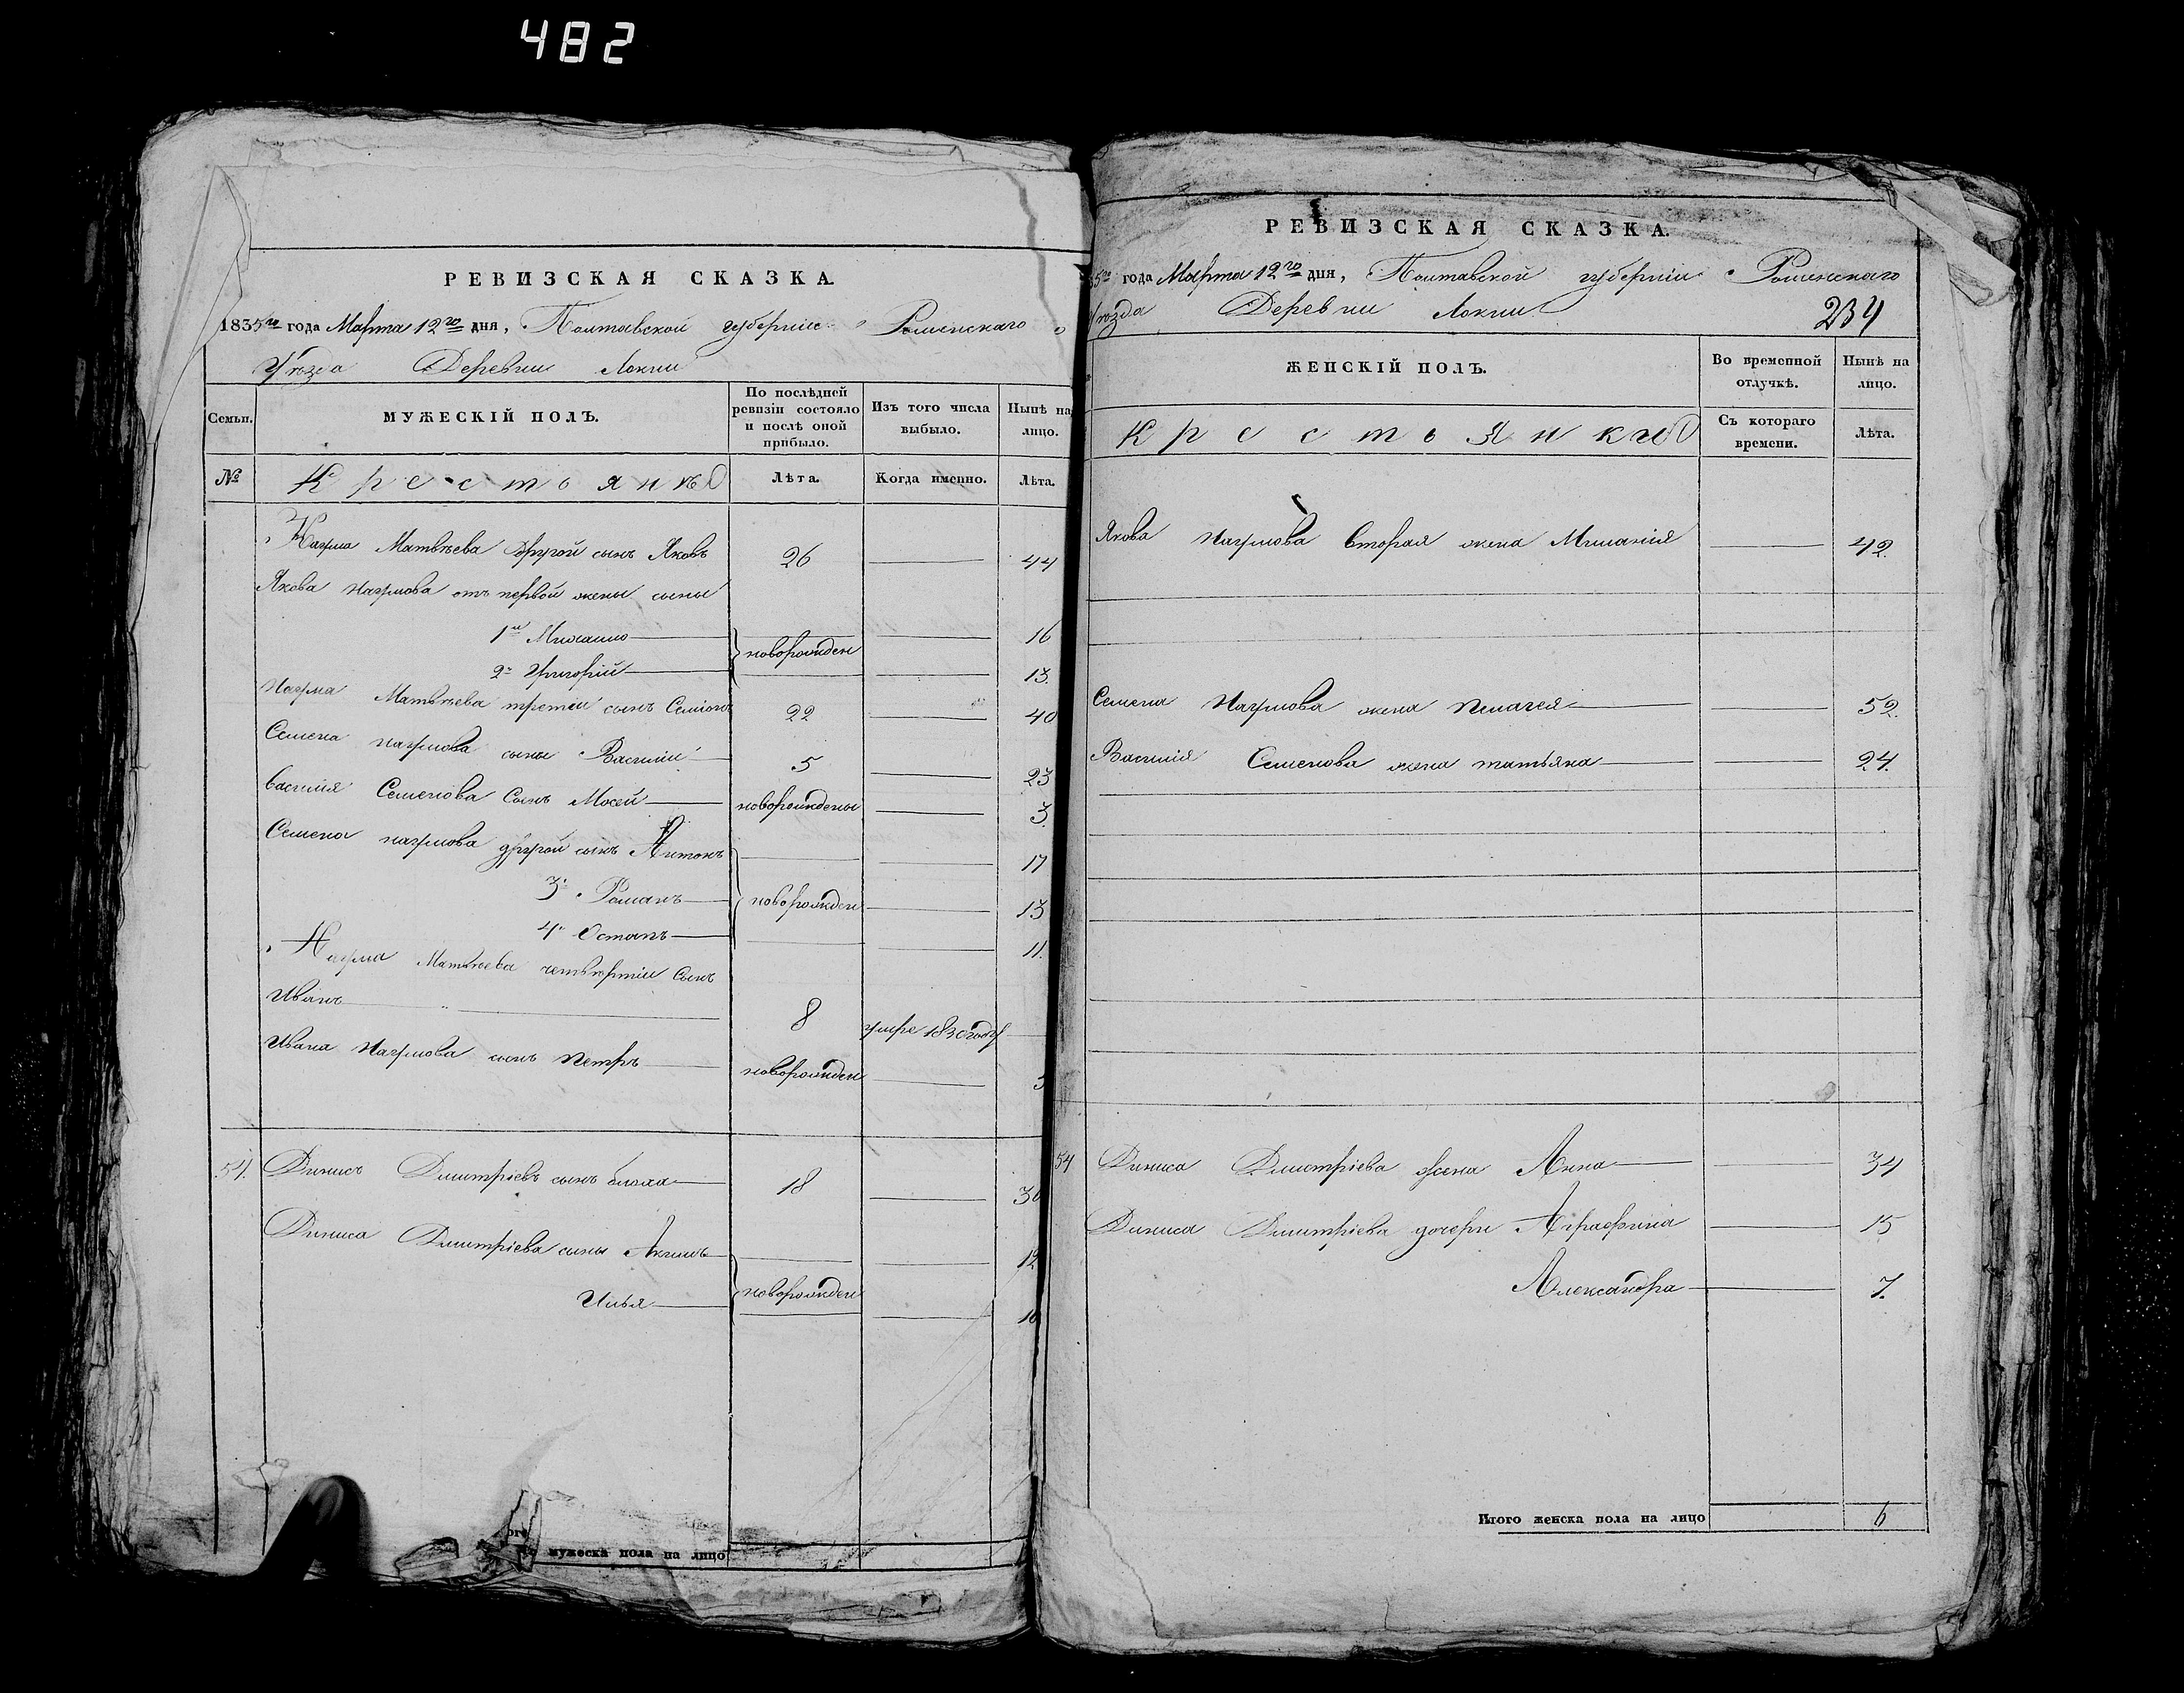 482
РЕВИЗСКАЯ СКАЗКА.
1835го года Марта 12го дня, Полтавской губерніи Роменскаго
Уѣзда Деревни Локни
Семьи.
МУЖЕСКІЙ ПОЛЪ.
По послѣдней ревизіи состояло и послѣ оной прибыло.
Изъ того числа выбыло.
Нынѣ на лицо.
№
Крестьянъ
Лѣта.
Когда именно.
Лѣта.
Наума Матвѣева другой сынъ Яковъ 26 44
Якова Наумова отъ первой жены сыны
1й Михайло 16
новорожден
2й Григорій 13.
Наума Матвѣева третій сынъ Семіонъ 22 40
Семена Наумова сыны Василій 5 23
Василія Семенова Сынъ Мосей новорождены 3.
Семена Наумова другой сынъ Антонъ 17
3й Романъ новорожден 13
4й Остапъ 11.
Наума Матвѣева четвертій Сынъ
Иванъ 8 умре 1830 году
Ивана Наумова сынъ Петръ новорожден
54. Динисъ Дмитріевъ сынъ 18
Диниса Дмитріева сыны Акимъ 12
новорожден
Илья 10
РЕВИЗСКАЯ СКАЗКА.
35го года Марта 12го дня, Полтавской губерніи Роменскаго
Уѣзда Деревни Локни 234
ЖЕНСКІЙ ПОЛЪ.
Во временной отлучкѣ.
Нынѣ на лицо.
Крестьянки
Съ котораго времени.
Лѣта.
Якова Наумова вторая жена Миланія 42.
Семена Наумова жена Пелагея 52.
Василія Семенова жена татьяна 24.
54 Диниса Дмитріева жена Анна 34
Диниса Дмитріева дочери Аграфина 15
Александра 7.
мужеска пола на лицо
Итого женска пола на лицо 6